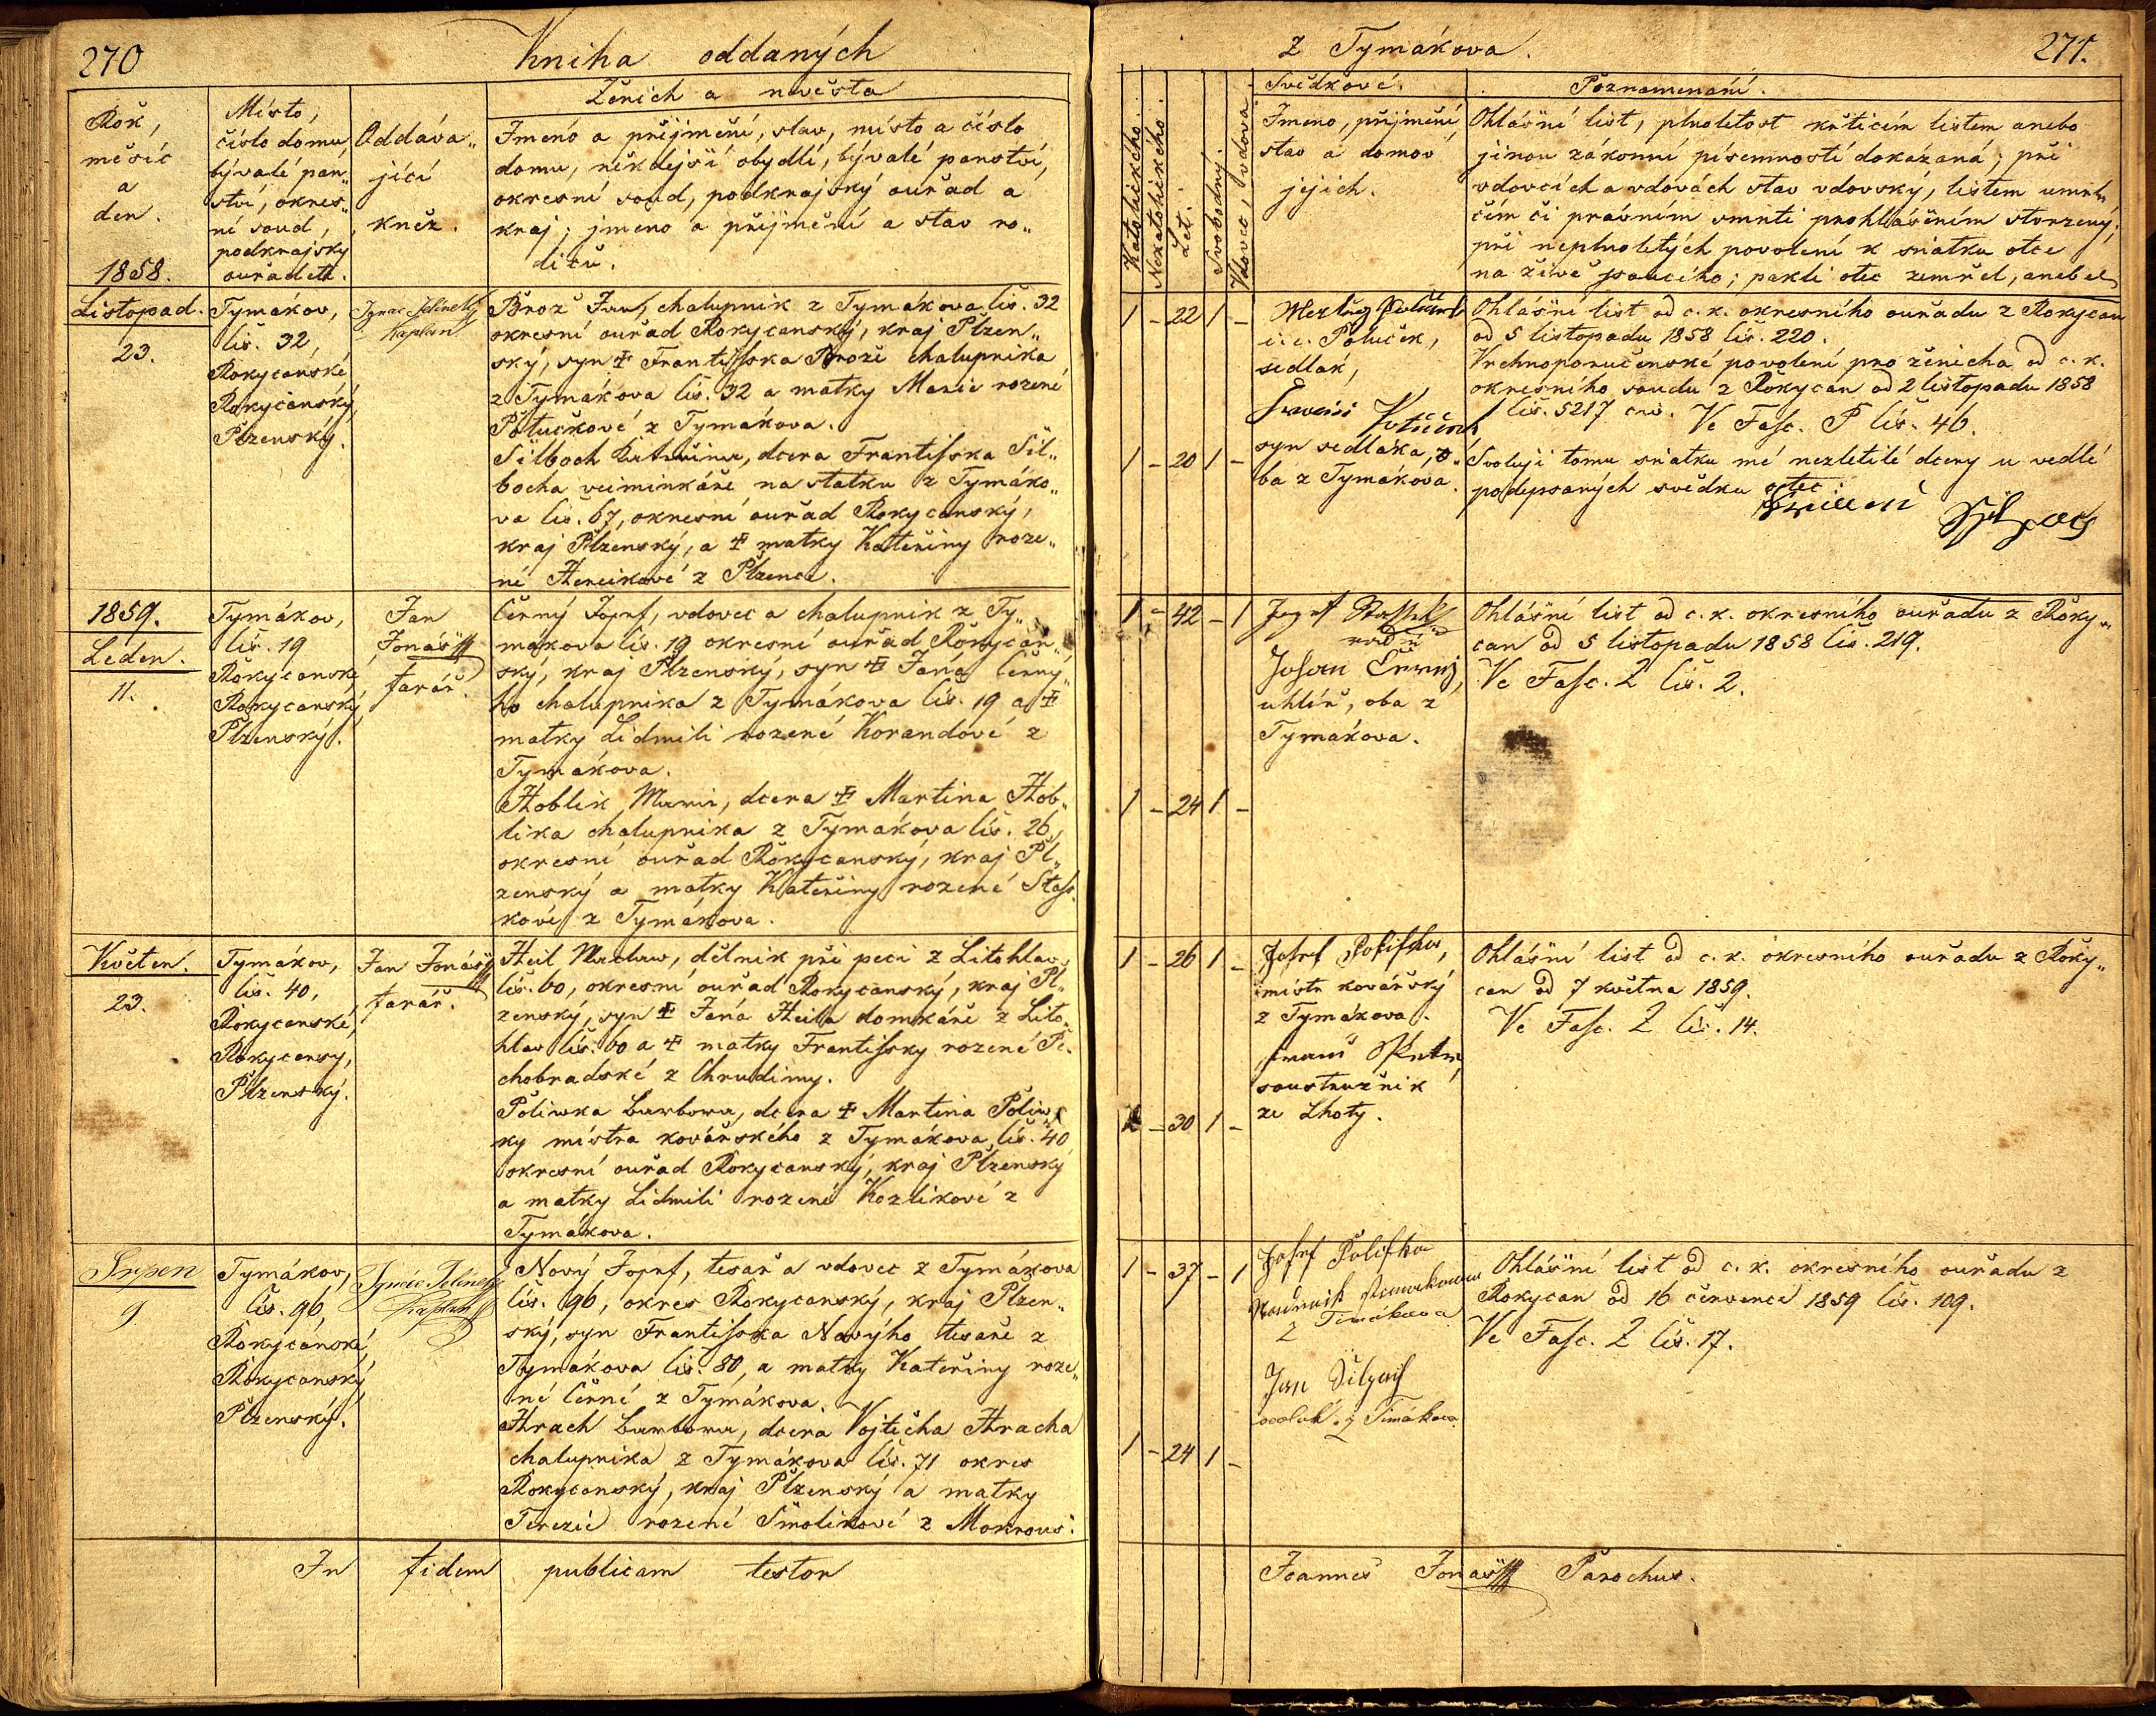 270
Kniha oddaných
Ženich a nevěsta
Rok,
měsíc
a
den.
1858.
Místo,
číslo domu,
bývalé pan„
ství, okres„
ní soud,
podkrajský
ouřad etc.
Oddáva„
jící
kněz.
Jméno a příjmění, stav, místo a číslo
domu, někdejší obydlí, bývalé panství,
okresní soud, podkrajský ouřad a
kraj; jmeno a příjmění a stav ro„
dičů.
Listopad.
23.
Tymákov,
čís. 32,
Rokycanské
Rokycanský,
Plzenský.
Ignac Jelinek
Kaplan
Brož Jan, chalupnik z Tymákova čís. 32
okresní ouřad Rokycanský, kraj Plzen„
ský, syn ☩ Frantisska Brože chalupnika
z Tymákova čís. 32 a matky Marie rozené
Potučkové z Tymákova.
Silboch Kateřina, dcera Frantisska Sil„
bocha veiminkáře na statku z Tymáko„
va čís. 67, okresní ouřad Rokycanský,
kraj Plzenský, a ☩ matky Kateřiny roze„
né Hereikové z Plzence.
1859.
Leden.
11.
Tymákov,
čís. 19
Rokycanské
Rokycanský,
Plzenský.
Jan
Jonáš
farář.
Černý Josef, vdovec a chalupnik z Ty„
makova čís. 19 okresní ouřad Rokycan„
ský, kraj Plzenský, syn ☩ Jana Černý„
ho chalupnika z Tymákova čís. 19 a ☩
matky Lidmili rozené Korandové z
Tymákova.
Hoblik Marie, dcera ☩ Martina Hob„
lika chalupnika z Tymákova čís. 26,
okresní ouřad Rokycanský, kraj Pl„
zenský a matky Kateřiny rozené Stas„
kové z Tymákova.
Květen.
23.
Tymákov,
čís. 40,
Rokycanské,
Rokycansy,
Plzenský.
Jan Jonáš
farář.
Heil Maclaw, dělnik při peci z Litohlav
čís. 60, okresní ouřad Rokycanský, kraj Pl„
zenský, syn ☩ Jana Heila domkáře z Lito„
hlav čís. 60 a ☩ matky Frantissky rozené Pe„
chobradské z Chrudimy.
Poliwka Barbora, dcera ☩ Martina Poliw„
ky místra kovářského z Tymákova čís. 40
okresní ouřad Rokycanský, kraj Plzenský
a matky Lidmili rozené Kozlikové z
Tymákova.
Srpen
9
Tymákov,
čís. 96,
Rokycanské,
Rokycanský,
Plzenský.
Ignác Jelinek
Kaplan
Nový Josef, tesař a vdovec z Tymákova
čís. 96, okres Rokycanský, kraj Plzen„
ský, syn Frantisska Novýho tesaře z
Tymákova čís. 80, a matky Kateřiny roze„
né Černé z Tymákova.
Hrach Barbora, dcera Vojtěcha Hracha
chalupnika z Tymákova čís. 71 okres
Rokycanský, kraj Plzenský a matky
Terezie rozené Smolikové z Mokrous.
In fidem publicam testor
z Tymákova.
271.
Katolického.
Nekatolického.
Let.
Svobodný.
Vdovec, vdova.
Svědkové.
Jmeno, příjmění
stav a domov
jejich.
Poznamenání.
Ohlášní list, plnoletost křticím listem anebo
jinou zákonní písemností dokázaná; při
vdovcích a vdovách stav vdovský, listem umrl„
čím či právním smrti prohlášením stvrzený;
při neplnoletých povolení k sňatku otce
na živě jsoucího; pakli otec zemřel, aneb et
1 - 22 1 -
i. e. Potuček,
sedlák,
syn sedláka, o„
ba z Tymákova.
Ohlášní list od c. k. okresního ouřadu z Rokycan
od 5 listopadu 1858 čís. 220.
Vrchnoporučenské povolení pro ženicha od c. k.
okresního soudu z Rokycan od 2 listopadu 1858
čís. 5217 civ.
Ve Fasc. P čís. 46.
1 - 20 1 -
Svoluji tomu sňatku mé nezletilé dcery u vedlé
podepsaných svědku otec
1 - 42 - 1
Johan Černej,
uhlíř, oba z
Tymákova.
Ohlášní list od c. k. okresního ouřadu z Roky„
can od 5 listopadu 1858 čís. 219.
Ve Fasc. Z čís. 2.
1 - 24 1 -
1 - 26 1 -
Josef Polifka,
místr kovářský
z Tymákova.
soustružnik
ze Lhoty.
Ohlášní list od c. k. okresního ouřadu z Roky„
can od 7 května 1859.
Ve Fasc. Z čís. 14.
1 - 30 1 -
1 - 37 - 1
Josef Polifka
z Timákova
Jan Silpoch
z Timákova
Ohlášní list od c. k. okresního ouřadu z
Rokycan od 16 července 1859 čís. 109.
Ve Fasc. Z čís. 17.
1 - 24 1 -
Joannes Jonáš Parochus.